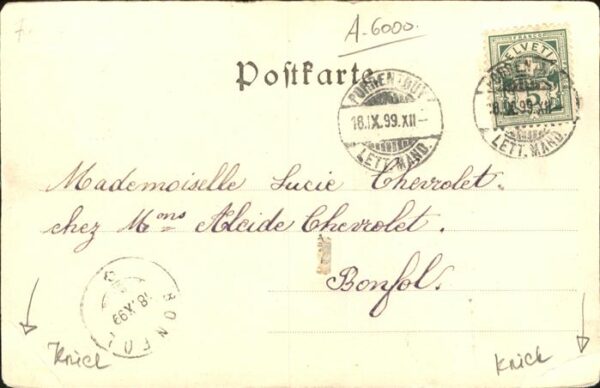 A.6000.
Postkarte.
FRANCO
HELVETIA
5
PORRENTRUY
18.IX.99.XII—
LETT. MAND.
PORRENTRUY
18.IX.99.XII—
LETT. MAND.
Mademoiselle Lucie Chevrolet.
chez Mons Alcide Chevrolet.
Bonfol.
BONFOL
18.IX.99
Knick
Knick